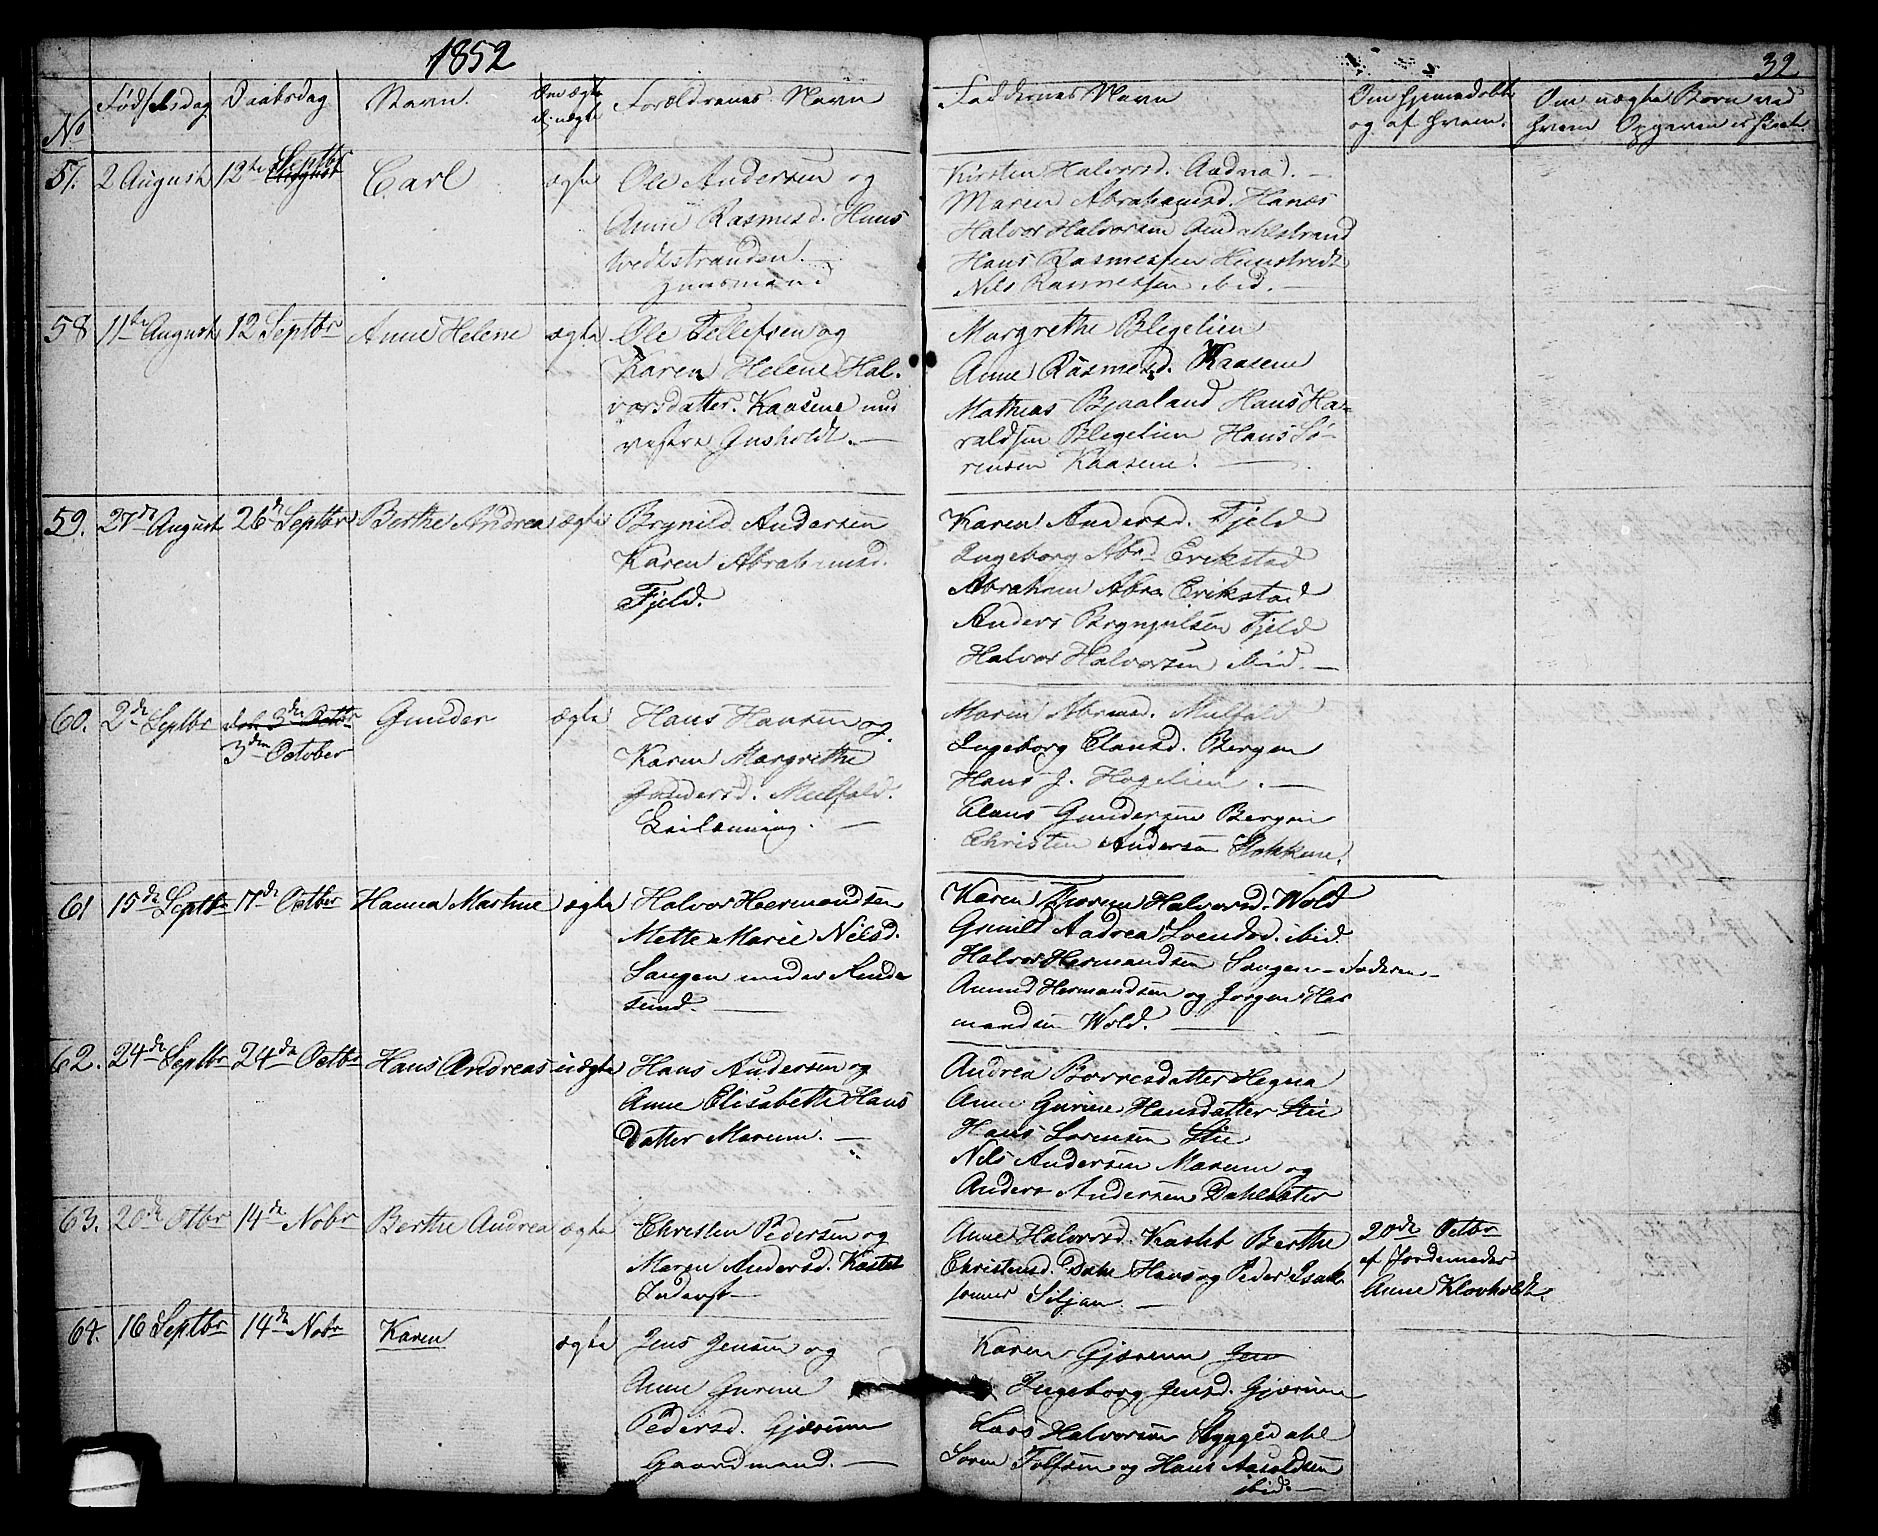 1852
32
No
Fødselsdag
Daabsdag
Navn.
Om ægte
ell. uægte
Forældrenes Navn
Faddernes Navn
Om hjemmedøbt
og af hvem.
Om uægte Børn ved
hvem Opgaven er skeet.
57. 2 August 12te Septbr August Carl ægte
Ole Andersen og
Anne Rasmusd. Huus
tvedtstranden. —
Huusmand
Kirsten Halvorsd. Aadna. —
Maren Abrahamsd. Hanes
Halvor Halvorsen
Hans Rasmessen
Nils Rasmessen ibid. —
58 11te August 12 Septbr Anne Helene ægte
Ole Tellefsen og
Karen Helene Hal-
vorsdatter. Kaasene
vestre Gusholdt. —
Margrethe Blegelien
Anne Rasmesd. Kaasene
Mathias Bjaaland Hans Ha-
raldsen Blegelien Hans Sø-
rensen Kaasene. —
59. 27de August 26de Septbr Berthe Andrea ægte
Brynild Andersen
Karen Abrahamsd.
Fjeld.
Karen Andersd. Fjeld
Ingeborg Abrd Erikstad
Abraham Abra Erikstad
Anders Brynjulsen Fjeld
Halvor Halvorsen ibid. —
60. 2de Septbr 3de Octbr Gunder ægte
3den October
Hans Hansen og
Karen Margrethe
Gundersd. Mulfald.
—
Maren Abrmsd. Mulfald
Ingeborg Clausd. Bergen
Hans J. Hagelien. —
Claus Gundersen Bergen
Christen Andersen Stokken.
61 15de Septbr 17de Octbr Hanna Martine ægte
Halvor Hermandsen
Mette Marie Nilsd.
Sangen under Aude
sund. —
Karen Thorine Halvorsd. Wold
Gunild Andrea Svendsd. ibid.
Halvor Hermandsen Sangen — Faderen —
Amund Hermandsen og Jørgen Her
mandsen Wold. —
62. 24de Septbr 24de Octbr Hans Andreas uægte
Hans Andersen og
Anne Elisabethe Hans
Datter Marum. —
Andrea Borresdatter Hegna
Anne Gurine Hansdatter Stie
Hans Sørensen Stie
Nils Andersen Marum og
Anders Andersen Dahlsater
63. 20de Otbr 14de Nobr Berthe Andrea ægte
Christen Pedersen og
Maren Andersd. Kastet
Inderst —
Anne Halvorsd. Kastet Berthe
Christensd. Dahl Hans og Peder Isak-
sønner Siljan. —
20de Octbr
af Jordemoder
Anne Klovholdt.
64. 16 Septbr 14de Nobr Karen ægte
Jens Jensen og
Anne Gurine
Pedersd. Gjærum
Gaardmand. —
Karen Gjærum Jen
Ingeborg Jensd. Gjærum
Lars Halvorsen Byggedahl
Søren Tolfsen og Hans Aasoldsen
ibid. —